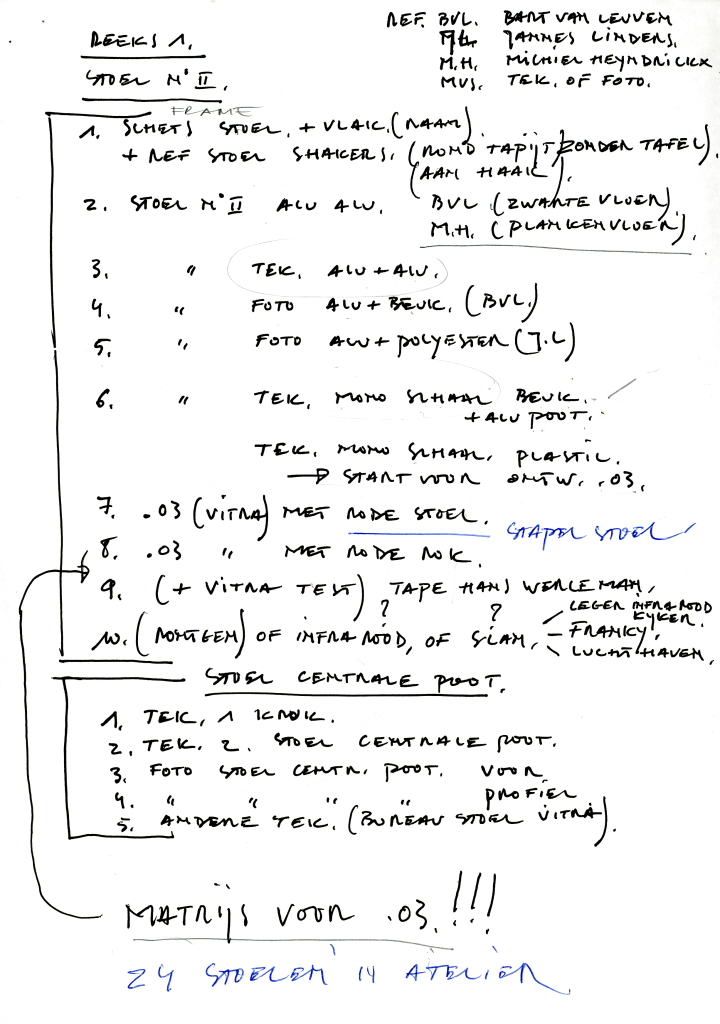 REF. BVL. BART VAN LEUVEN
REEKS 1.
J.L. JANNES LINDERS.
M.H. MICHIEL HEYNDRICKX
STOEL N° II.
MVS. TEK. OF FOTO.
FRAME
1. SCHETS STOEL. + VLAK. (RAAM)
+ REF STOEL SHAKERS. (ROND TAPIJT ZONDER TAFEL).
(AAN HAAK).
2. STOEL N° II ALU ALU. BVL (ZWARTE VLOER)
M.H. (PLANKENVLOER).
3. " TEK. ALU + ALU.
4. " FOTO ALU + BEUK. (BVL.)
5. " FOTO ALU + POLYESTER (J.L)
6. " TEK. MONO SCHAAL BEUK.
+ ALU POOT.
TEK. MONO SCHAAL. PLASTIC.
→ START VOOR ONTW. .03.
7. .03 (VITRA) MET RODE STOEL. STAPEL STOEL
8. .03 " MET RODE ROK.
9. (+ VITRA TEST) TAPE HANS WERLEMAN,
10. (RONTGEN) OF INFRAROOD, OF SCAN,
? ?
LEGER INFRAROOD
KYKER.
FRANKY,
LUCHTHAVEN,
STOEL CENTRALE POOT.
1. TEK, 1 KRUK.
2. TEK. 2. STOEL CENTRALE POOT.
3. FOTO STOEL CENTR. POOT. VOOR
4. " " " " PROFIEL
5. ANDERE TEK. (BUREAU STOEL VITRA).
MATRIJS VOOR .03. !!!
24 STOELEN IN ATELIER